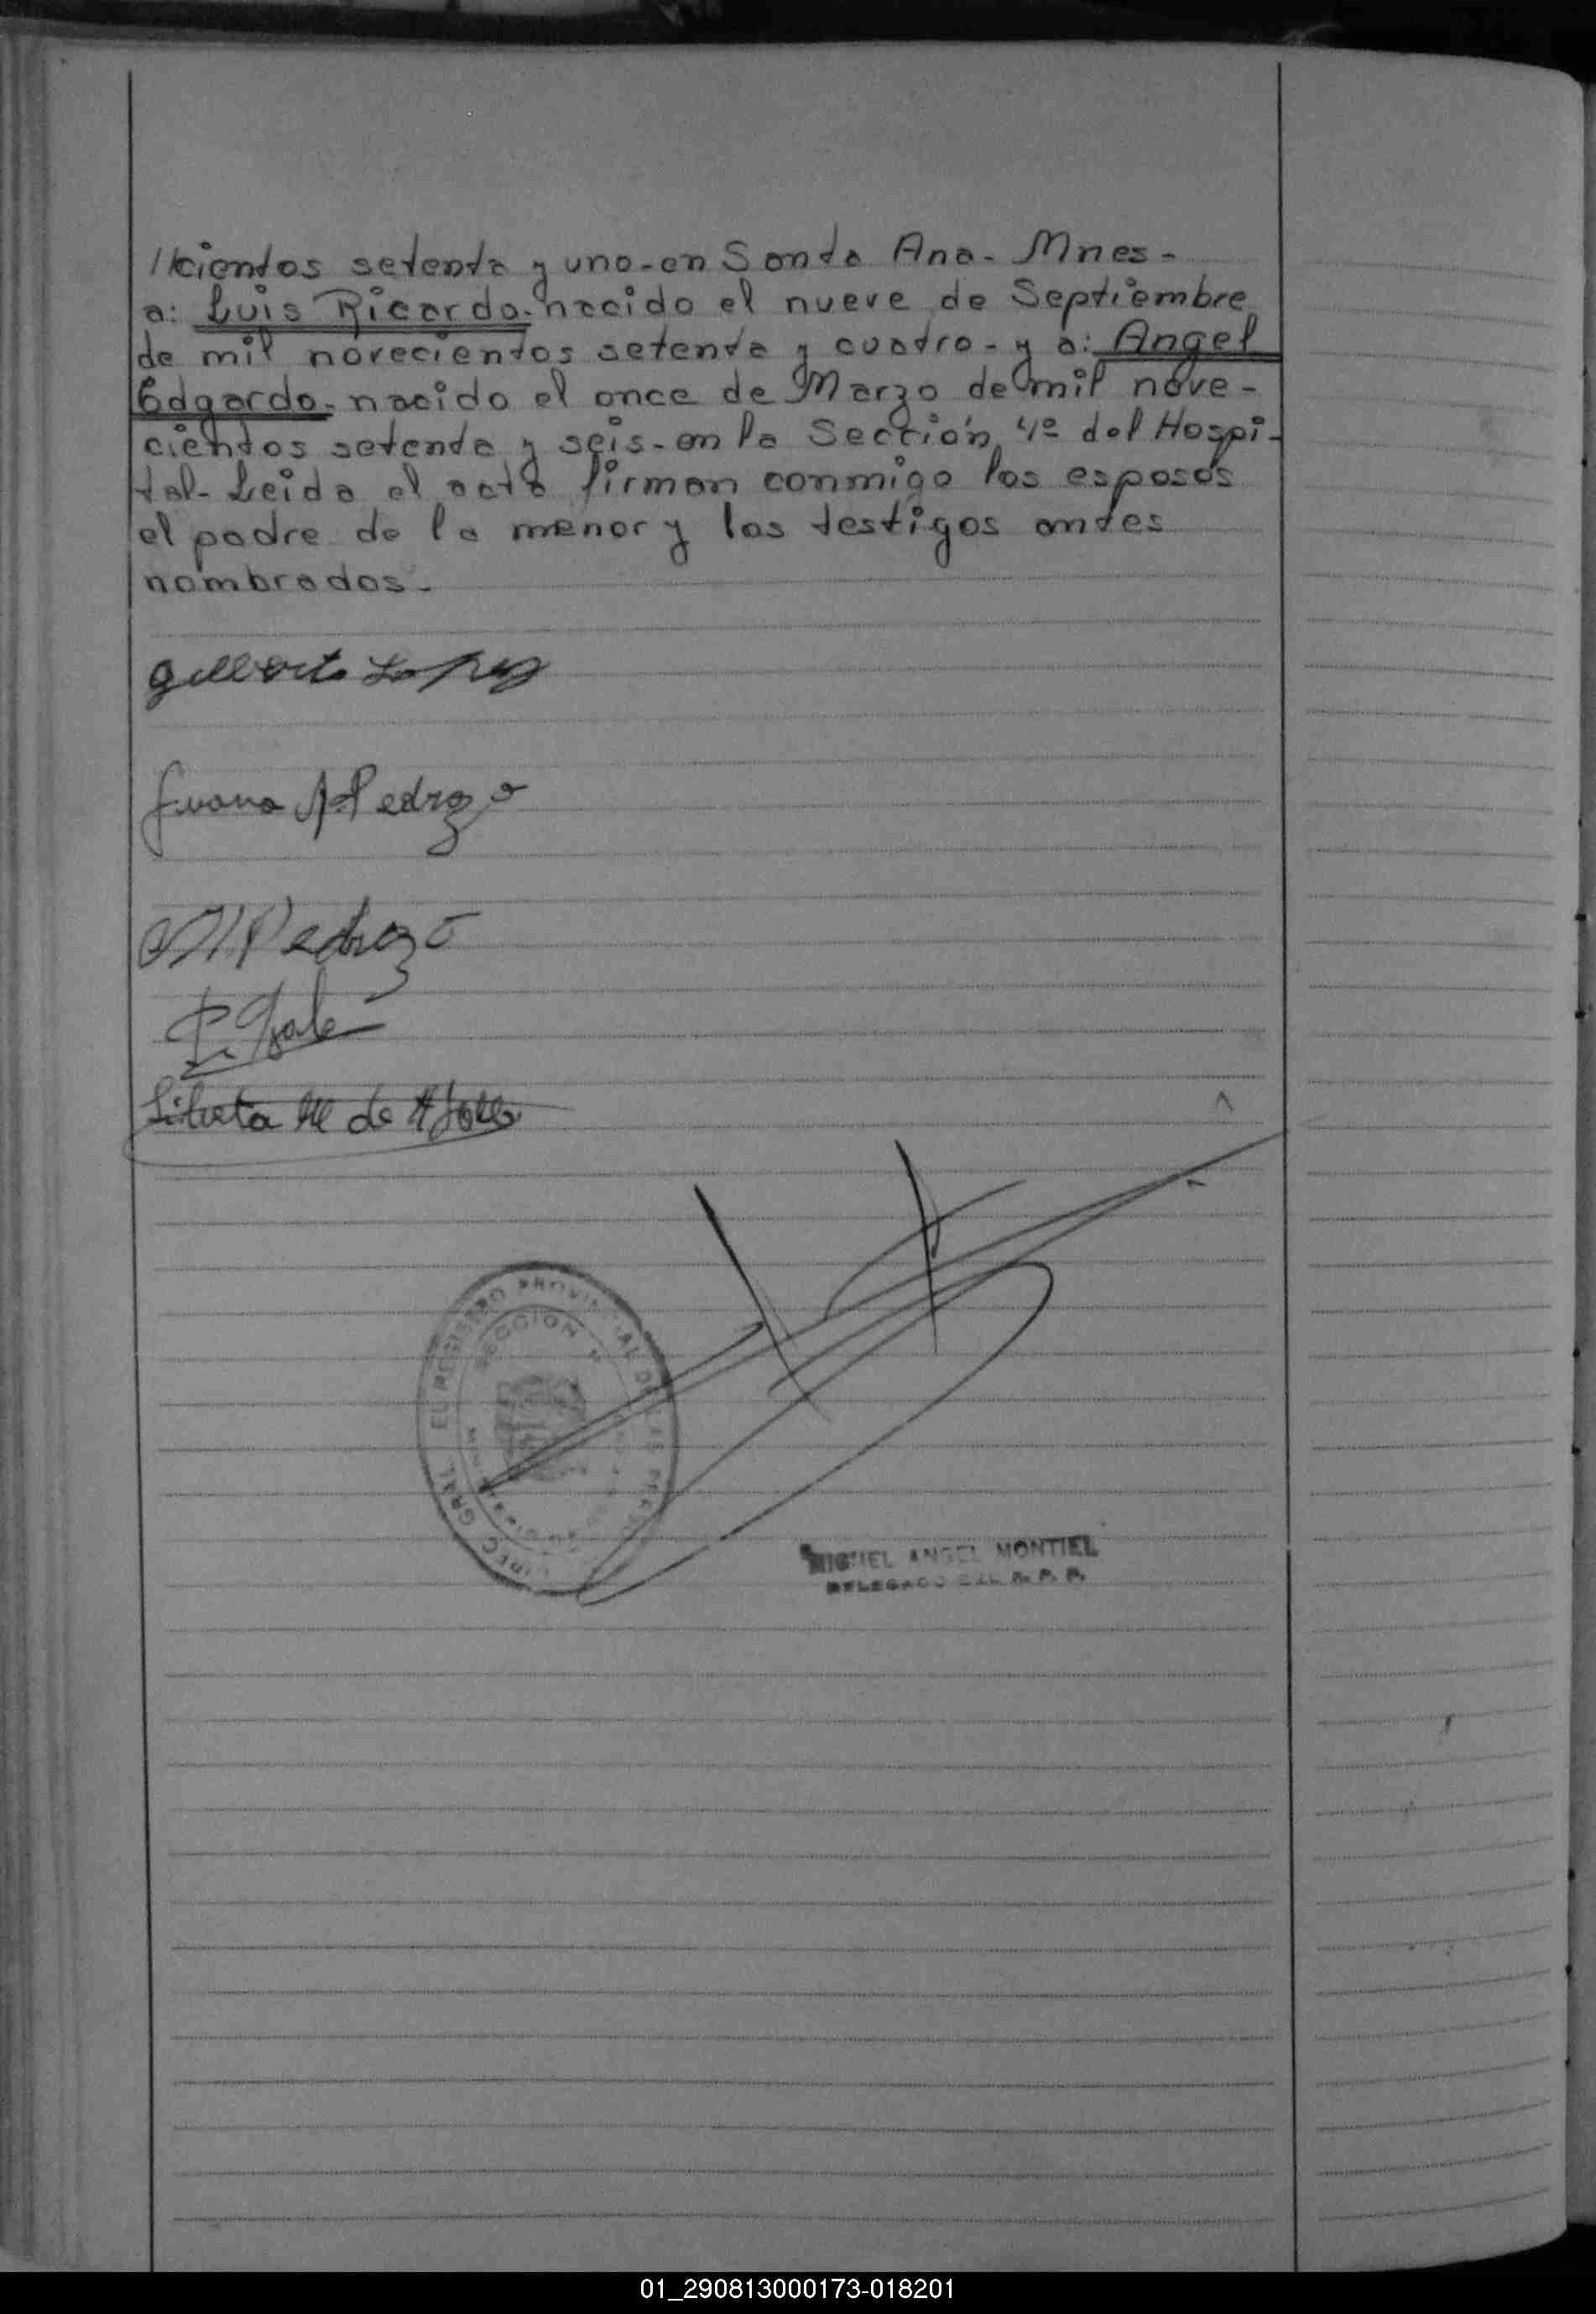 //cientos setenta y uno-en Santa Ana- Mnes-
a: Luis Ricardo-nacido el nueve de Septiembre
de mil novecientos setenta y cuatro- y a: Angel
Edgardo-nacido el once de Marzo de mil nove-
cientos setenta y seis-en la Sección 4º del Hospi-
tal-Leida el acta firman conmigo los esposos
el padre de la menor y los testigos antes
nombrados-
Gilberto Lopez
Juana A Pedrozo
Pedrozo
de
REGISTRO PROVINCIAL DE LAS
SECCION
MIGUEL ANGEL MONTIEL
DELEGADO DEL R. P. P.
01_290813000173-018201